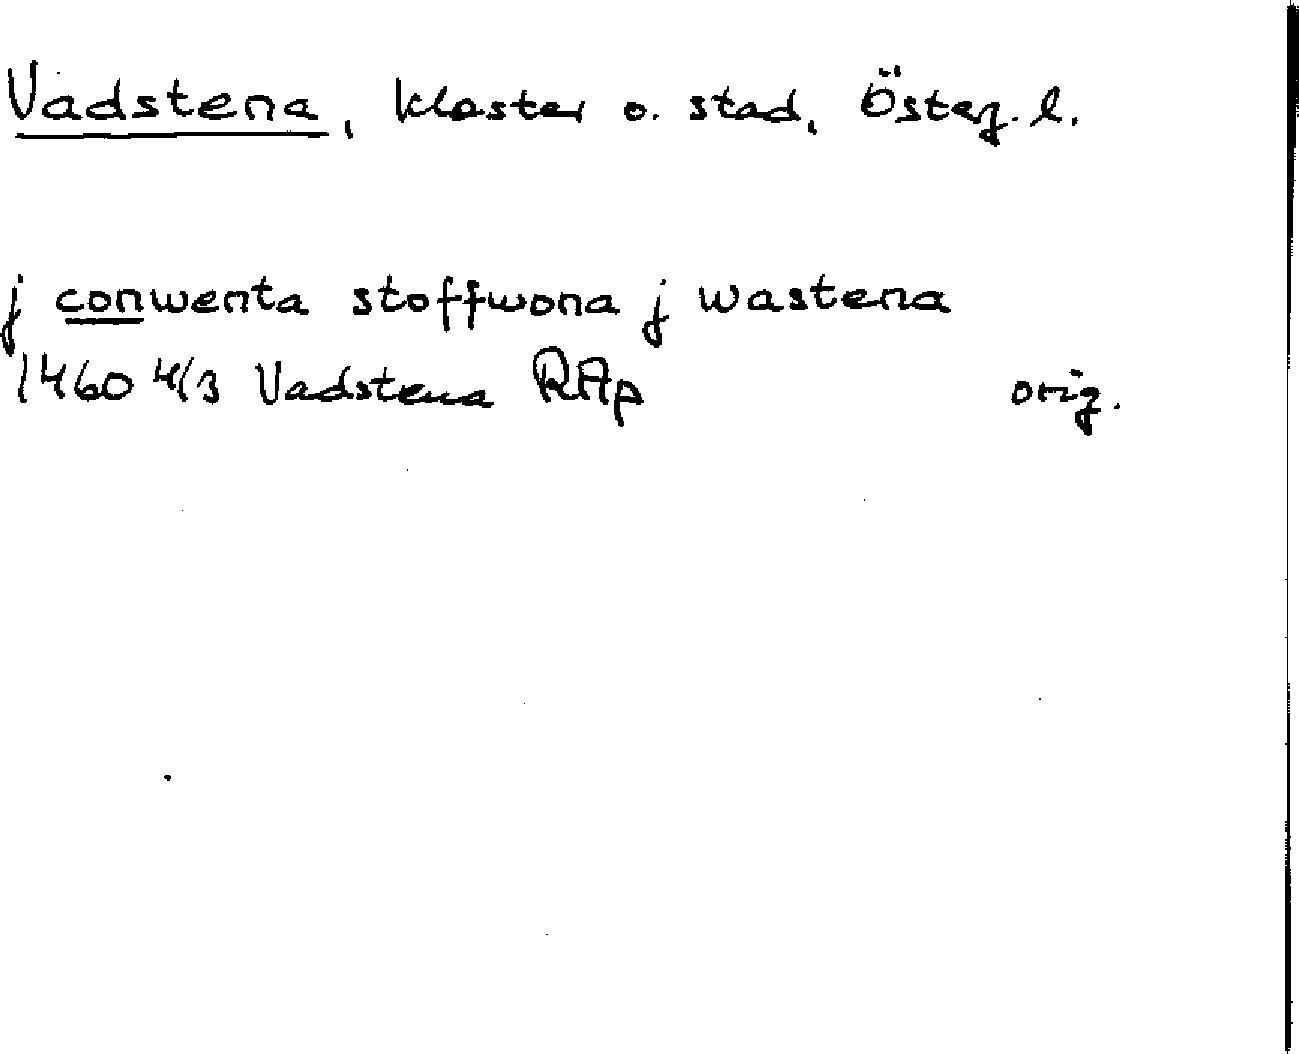 Vadstena, kloster o. stad, Österg. l.
j conwenta stoffwona j wastena
1460 4/3 Vadstena RAp orig.